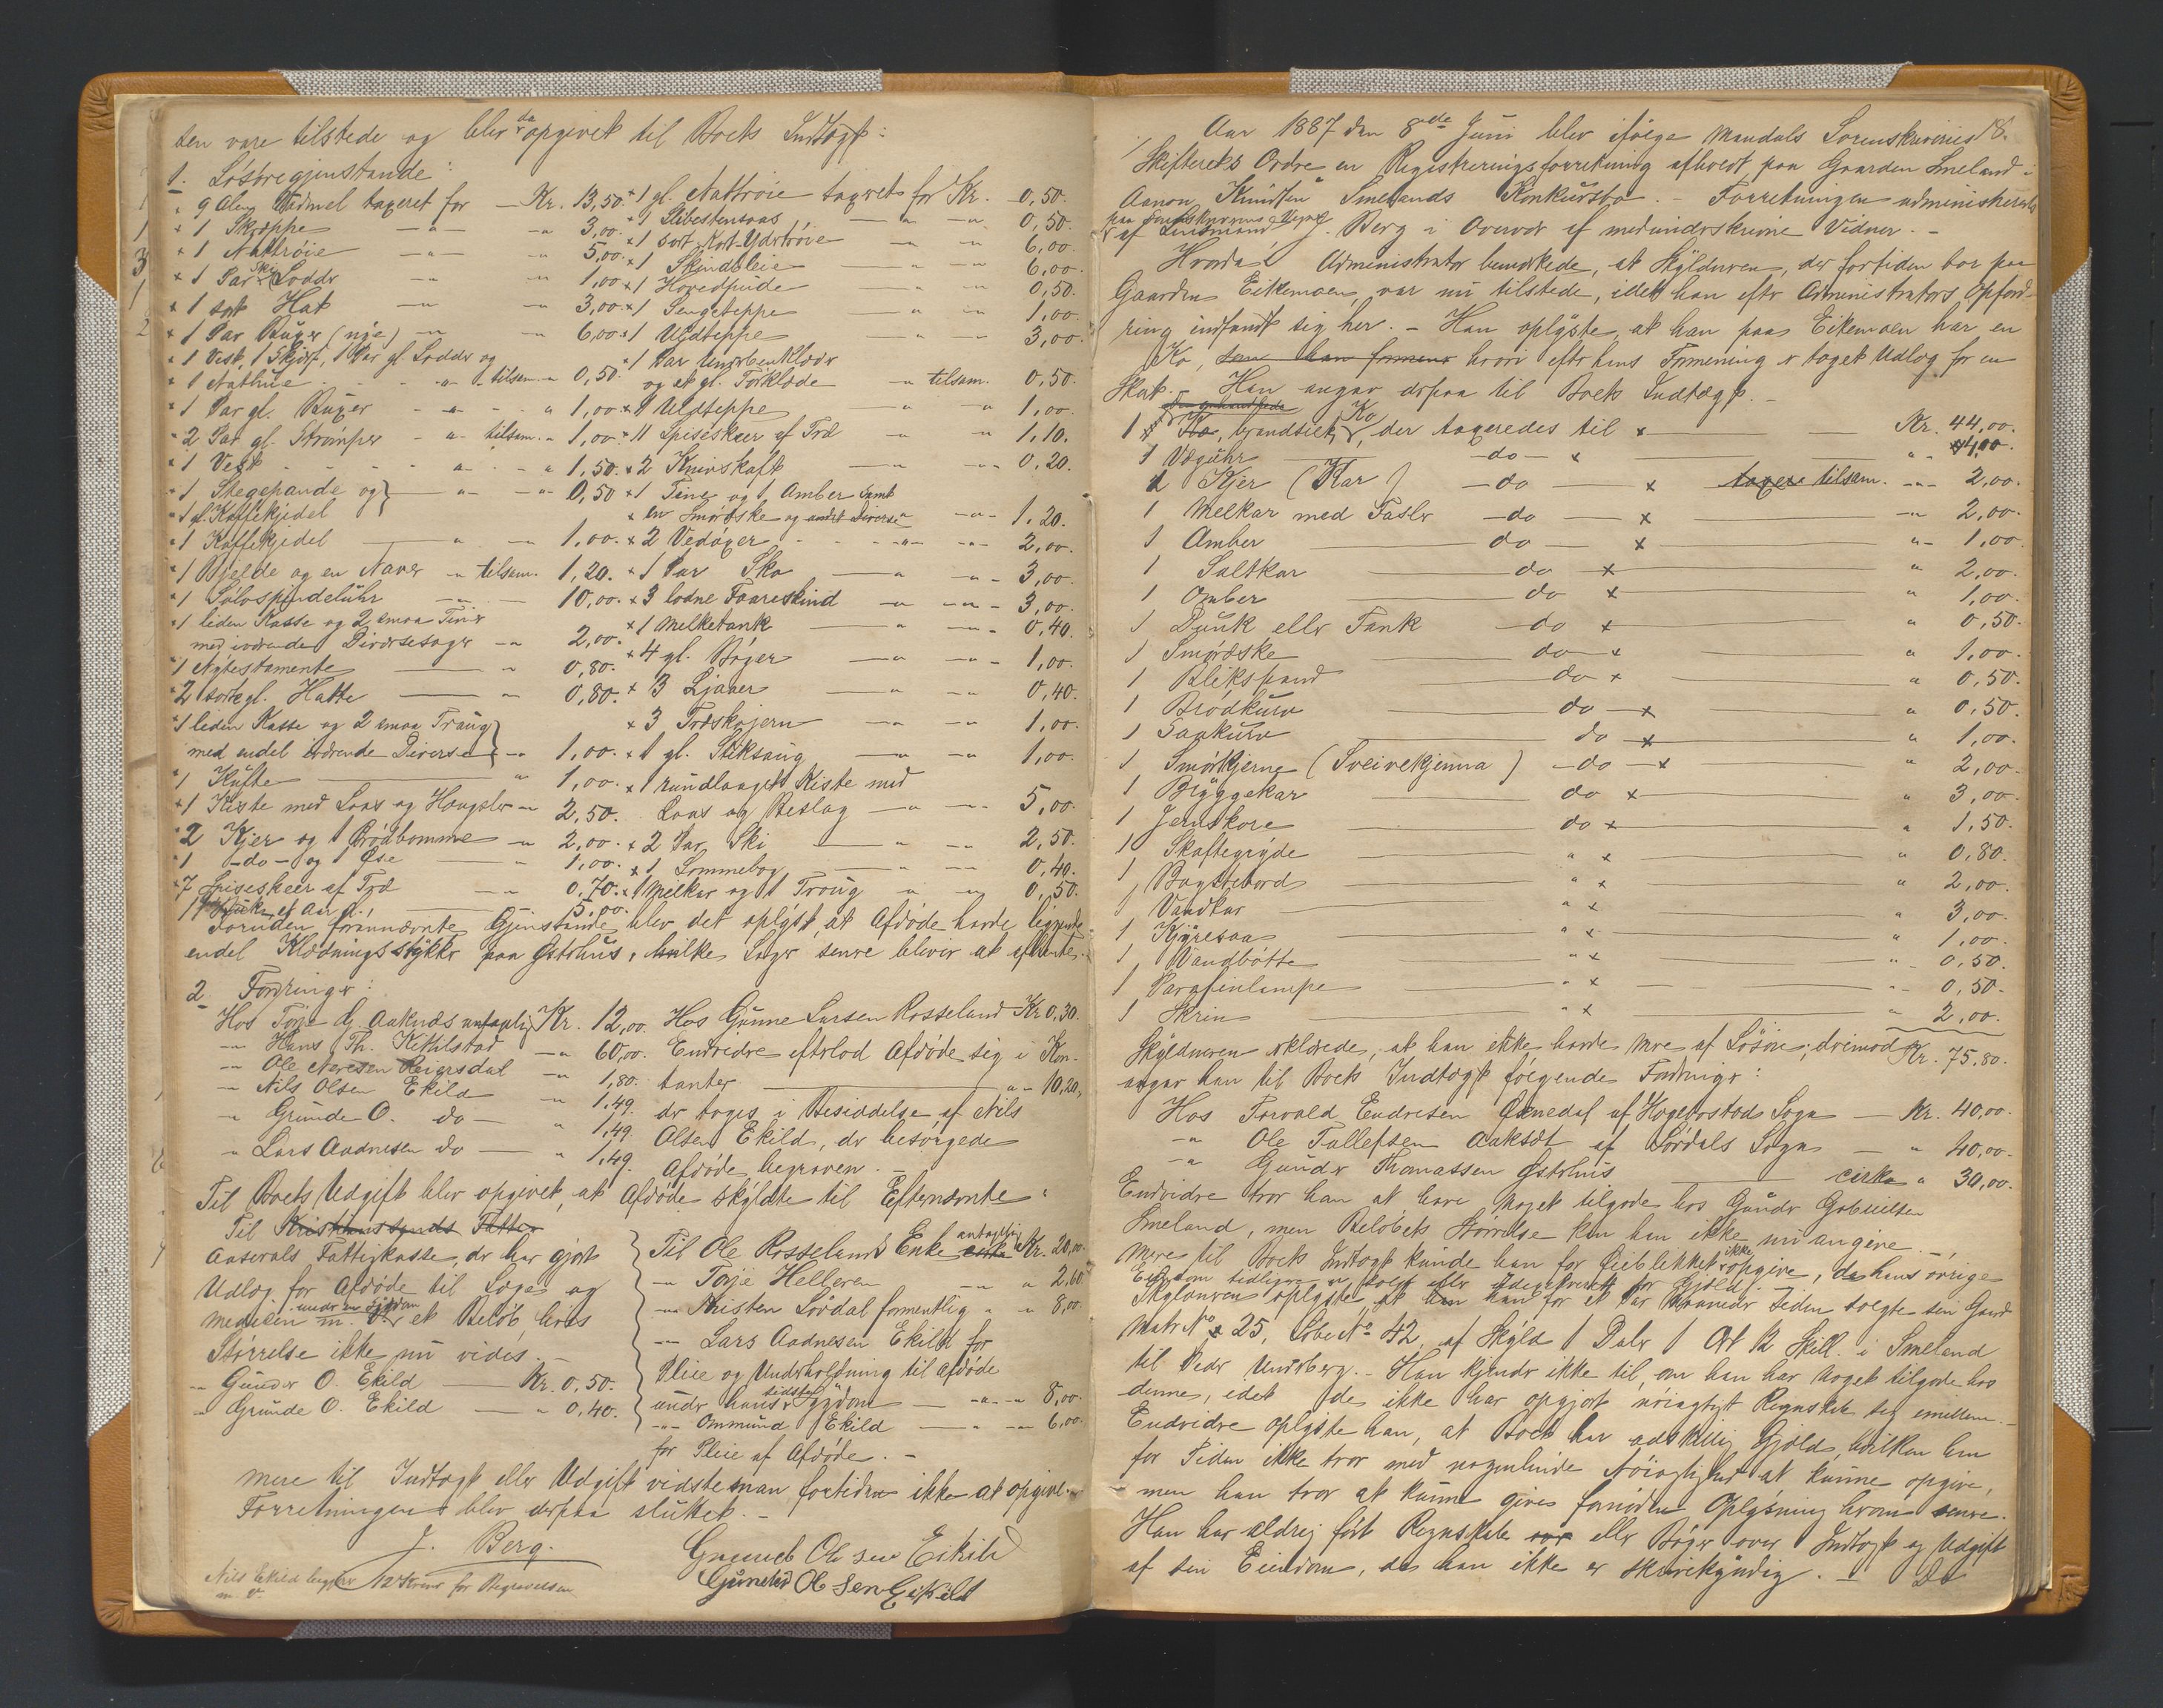 ten vare tilstede og blev da opgivet til Boets Indtægt:
1. Løsøregjenstande:
9 Alen Vadmel taxeret for — Kr. 13,50.
1 Skreppe — " — " 3,00.
1 Nattrøie — " — " 5,00.
1 Par Ski Lodder " — " 1,00
1 sort Hat — " — " 3,00
1 Par Buxer (nye) — " — " 6,00
1 Vest, 1 Skjørt, 1 Par gl. Lodder og
1 Nathue - - - " - tilsam. " 0,50.
1 Par gl. Buxer - " - " 1,00
2 Par gl. Strømper - " - tilsam. " 1,00
1 Vest - - - " - " 1,50.
1 Stegepande og } — " — " 0,50
1 gl. Kaffekjedel
1 Kaffekjedel — " — " 1,00.
1 Bjelde og en Naver — " tilsam. 1,20.
1 Sølvspindeluhr — " — 10,00.
1 liden Kasse og 2 smaa Tiner
med iværende Diversesager — " 2,00.
1 Nytestamente — " 0,80.
2 sorte gl. Hatte — " 0,80.
1 liden Kasse og 2 smaa Traug }
med endel iværende Diverse — " 1,00.
1 Kufte — " 1,00.
1 Kiste med Laas og Hængsler — " 2,50.
2 Kjer og 1 Brødbomme — " 2,00.
1 - do - og 1 Øse — 1,00.
7 Spiseskeer af Træ — " 0,70.
5,00.
1 gl. Nattrøie taxeret for Kr. 0,50.
1 Slibestensaas — " — " 0,50.
1 sort Kort-Ydertrøie — " — " 6,00.
1 Skindbleie — " — " 6,00.
1 Hovedpude — " — " 0,50.
1 Sengeteppe — " — " 1,00.
1 Uldteppe — " — " 3,00.
1 Par Underbenklæder
og et gl. Forklæde — " tilsam. 0,50.
1 Uldteppe — " — " 1,00.
11 Spiseskeer af Træ — " — " 1,10.
2 Knivskaft — " — " 0,20.
1 Tine og 1 Amber samt
en Smørøske og andet Diverse — " — 1,20.
2 Vedøxer - - - " — " — 2,00.
1 Par Sko — " — " — 3,00.
3 lodne Faareskind — " — " — 3,00.
1 Melketank — " — " — 0,40.
4 gl. Bøger — " — " — 1,00.
3 Ljaaer — " — " 0,40.
3 Træskojern — " — " 1,00.
1 gl. Stiksaug — " — " 1,00.
1 rundlaaget Kiste med
Laas og Beslag — " — " 5,00.
2 Par Ski — " — " 2,50.
1 Lommebog — " — " 0,40.
1 Melkar og 1 Traug " — " 0,50.
Foruden forannævnte Gjenstande blev det oplyst, at Afdøde havde liggende
endel Klædningsstykker paa Østerhus, hvilke Sager senere bliver at afhente.
2. Fordringer:
Hos Torje G. Aaknæs antagelig Kr. 12,00.
— " Hans Th. Ketilstad — " 60,00.
— " Ole Neresen Reiersdal — " 1,80.
— " Nils Olsen Ekild — " 1,49.
— " Grunde O. do — " 1,49.
" Lars Aadnesen do — " 1,49.
Hos Gunne Larsen Rosseland Kr 0,30.
Endvidere efterlod Afdøde sig i Kon-
tanter — " — 10,20,
der toges i Besiddelse af Nils
Olsen Ekild, der besørgede
Afdøde begraven. —
Til Boets Udgift blev opgivet, at Afdøde skyldte til Efternævnte:
Til Kristianssands Fattig
Aaserals Fattigkasse, der har gjort
Udlæg for Afdøde til Læge og
Medicin m. v. under en Sygdom et Beløb, hvis
Størrelse ikke nu vides. —
— " Gunder O. Ekild — Kr. 0,50.
" Grunde O. Ekild — " 0,40.
Til Ole Rosselands Enke antagelig cirka Kr. 20,00.
— " Torje Helleren — " " 2,60
— " Kristen Lørdal formentlig " " 8,00.
— " Lars Aadnesen Ekild for
Pleie og Underholdning til Afdøde
under hans sidste Sygdom — " — " 8,00.
— " Ommund Ekild — " — " 6,00.
for Pleie af Afdøde. —
Mere til Indtægt eller Udgift vidste man fortiden ikke at opgive. —
Forretningen blev derpaa sluttet. —
J. Berg.
Gunned Olsen Eikild
Gunsted Olsen Eikild
Nils Ekild begjær 12 Kroner for Begravelsen
m. v.
18.
Aar 1887 den 8de Juni blev ifølge Mandals Sorenskriveries
Skifterets Ordre en Registreringsforretning afholdt paa Gaarden Smeland i
Aanon Knudsen Smelands Konkursbo. — Forretningen administreredes
paa Sorenskriverens Vegne af Lensmand J. Berg i Overvær af medunderskrivne Vidner. —
Hvorda: Administrator bemærkede, at Skyldneren, der fortiden bor paa
Gaarden Eikemoen, var nu tilstede, idet han efter Administrators Opford-
ring indfandt sig her. — Han oplyste, at han paa Eikemoen har en
Ko, som han formener hvori efter hans Formening er taget Udlæg for en
Skat. — Han angav derpaa til Boets Indtægt. —
1 Ko, brandslet, Ko der taxeredes til — Kr. 44,00.
1 Væguhr — do — " - 4,00.
2 Kjer (Kar) — do — taxere tilsam. — " 2,00.
1 Melkar med Fasler — do — " 2,00.
1 Amber — do — " - 1,00
1 Saltkar — do — " 2,00.
1 Amber — do — " 1,00.
1 Dunk eller Tank — do — " 0,50.
1 Smørøske — do — " 1,00.
1 Blikspand — do — " 0,50.
1 Brødkurv — do — " 0,50.
1 Saakurv — do — " 1,00.
1 Smørkjerne (Sveivekjenna) — do — " 2,00.
1 Bryggekar — do — " 3,00.
1 Jernskore — do — " 1,50.
1 Skaftegryde — " — " 0,80.
1 Bagstebord — " — " 2,00.
1 Vandkar — " — " 3,00.
1 Kjøresaa — " — " 1,00.
1 Vandbøtte — " — " 0,50.
1 Parafinlampe — " — " 0,50.
1 Skrin — " — " 2,00.
Skyldneren erklærede, at han ikke havde mere af Løsøre; derimod Kr. 75,80.
angav han til Boets Indtægt følgende Fordringer:
Hos Torvald Endresen Øknedal af Hægebostads Sogn — Kr. 40,00.
— " Ole Tallefsen Aaksæt af Lørdals Sogn — " 40,00.
— " Gunder Thomassen Østerhus — cirka " 30,00.
Endvidere tror han at have noget tilgode hos Gunder Gabrielsen
Smeland, men Beløbets Størrelse kan han ikke nu angive. —
Mere til Boets Indtægt kunde han for Øieblikket ikke opgive, da hans øvrige
Eiendom tidligere er solgt eller udlagt for Gjæld. —
Skyldneren oplyste, at han for et Par Maaneder siden solgte sin Gaard
Matr. No 25, Løbe No 42, af Skyld 1 Daler 1 Ort 12 Skill. i Smeland
til Peder Undeberg. — Han kjender ikke til, om han har noget tilgode hos
denne, idet de ikke har opgjort nøiagtigt Regnskab sig imellem. —
Endvidere oplyste han, at Boet har adskillig Gjæld, hvilken han
for Tiden ikke tror med nogenlunde Nøiagtighed at kunne opgive,
men han tror at kunne give fornøden Oplysning herom senere.
Han har aldrig ført Regnskab over eller Bøger over Indtægt og Udgift
af sin Eiendom, da han ikke er skrivekyndig. —